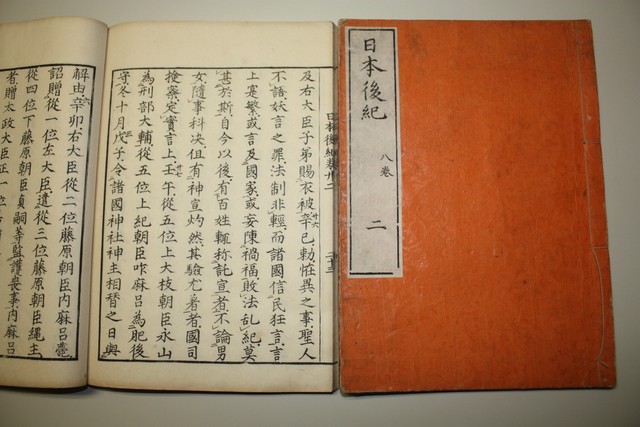 日本後紀
八巻
二
日本後紀卷廿二
及右大臣子弟賜衣被辛巳勅恠異之事聖人
廿六
不語妖言之罪法制非輕而諸國信民狂言言
上寔繁或言及國家或妄陳禍福敗法乱紀莫
甚於斯自今以後有百姓輙稱託宣者不論男
女隨事科决但有神宣灼然其驗尤著者國司
撿察定實言上壬午從五位上大枝朝臣永山
為刑部大輔從五位上紀朝臣咋麻呂為肥後
守冬十月戊子令諸國神社神主相替之日與
解由辛卯右大臣從二位藤原朝臣内麻呂薨
詔贈從一位左大臣遣從三位藤原朝臣縄主
從四位下藤原朝臣貞嗣等監護喪事内麻呂
者贈太政大臣正一位